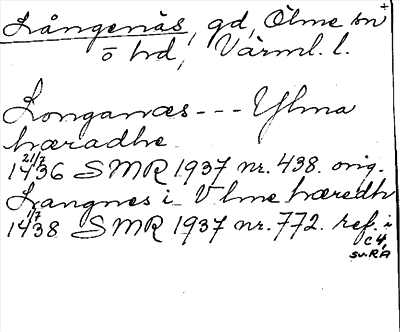 Långenäs, gd, Ölme sn +
ö hd, Värml. l.
Longanæs --- Ylma
hæradhe
21/7
1436 SMR 1937 nr. 438. orig.
Langnes i Vlme hæredh
1/7
1438 SMR 1937 nr. 772. ref. i
C 4,
sv. RA